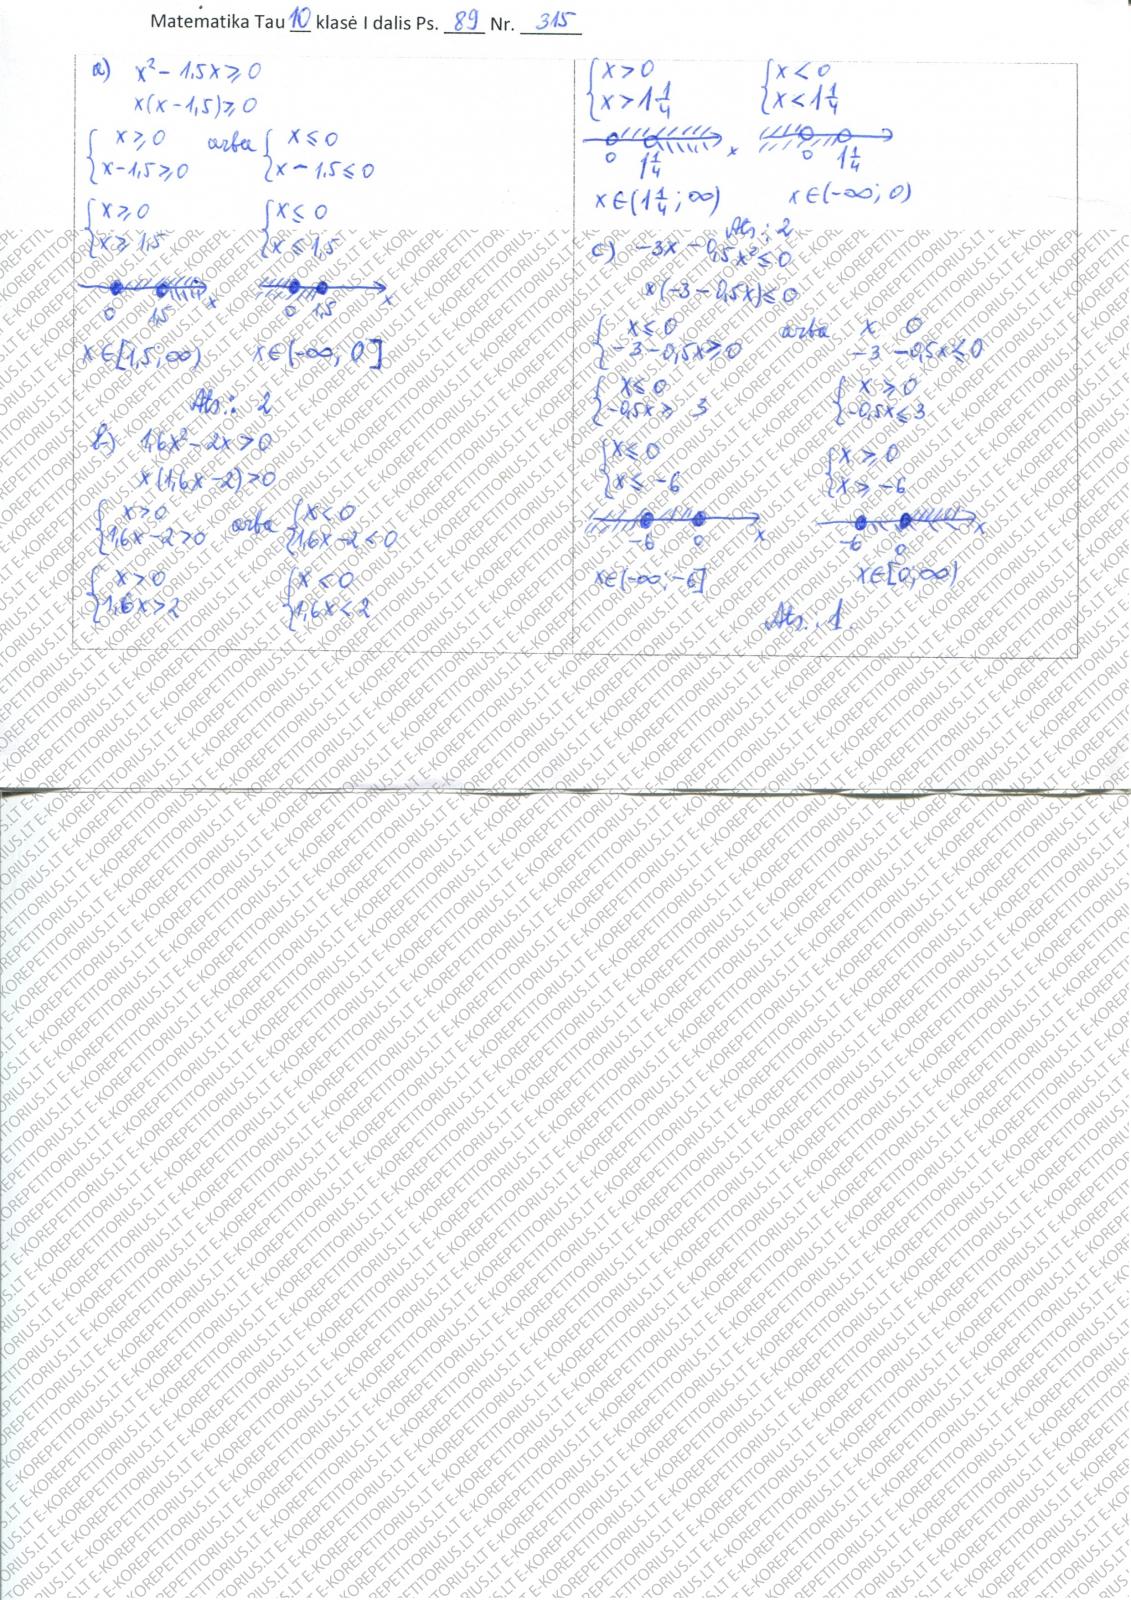 Matematika Tau 10 klasė I dalis Ps. 89 Nr. 315
a) x² - 1,5x ≥ 0
x(x - 1,5) ≥ 0
{ x ≥ 0 arba { x ≤ 0
{ x - 1,5 ≥ 0 { x - 1,5 ≤ 0
{ x ≥ 0 { x ≤ 0
{ x ≥ 1,5 { x ≤ 1,5
0 1,5 x 0 1,5 x
x∈[1,5; ∞) x∈(-∞; 0]
Ats.: 2
b) 1,6x² - 2x > 0
x(1,6x - 2) > 0
{ x > 0 arba { x < 0
{ 1,6x - 2 > 0 { 1,6x - 2 < 0
{ x > 0 { x < 0
{ 1,6x > 2 { 1,6x < 2
{ x > 0 { x < 0
{ x > 1 1/4 { x < 1 1/4
0 1 1/4 x 0 1 1/4
x∈(1 1/4; ∞) x∈(-∞; 0)
Ats.: 2
c) -3x - 0,5x² ≤ 0
x(-3 - 0,5x) ≤ 0
{ x ≤ 0 arba x 0
{ -3 - 0,5x ≥ 0 -3 - 0,5x ≤ 0
{ x ≤ 0 { x ≥ 0
{ -0,5x ≥ 3 { -0,5x ≤ 3
{ x ≤ 0 { x ≥ 0
{ x ≤ -6 { x ≥ -6
-6 0 x -6 0 x
x∈(-∞; -6] x∈[0; ∞)
Ats.: 1
E-KOREPETITORIUS.LT